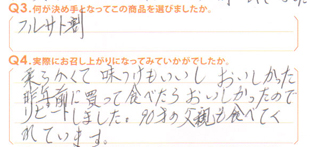 Q3.何が決め手となってこの商品を選びましたか。
フルサト割
Q4.実際にお召し上がりになってみていかがでしたか。
柔らかくて 味つけもいいし おいしかった
昨年前に買って食べたらおいしかったので
リピートしました。90才の父親も食べてく
れています。